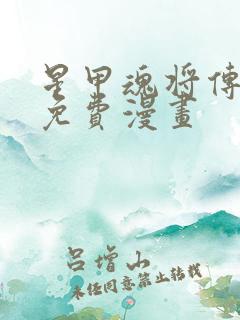 星甲魂将傳
免費漫畫
呂增山
未经同意禁止转载